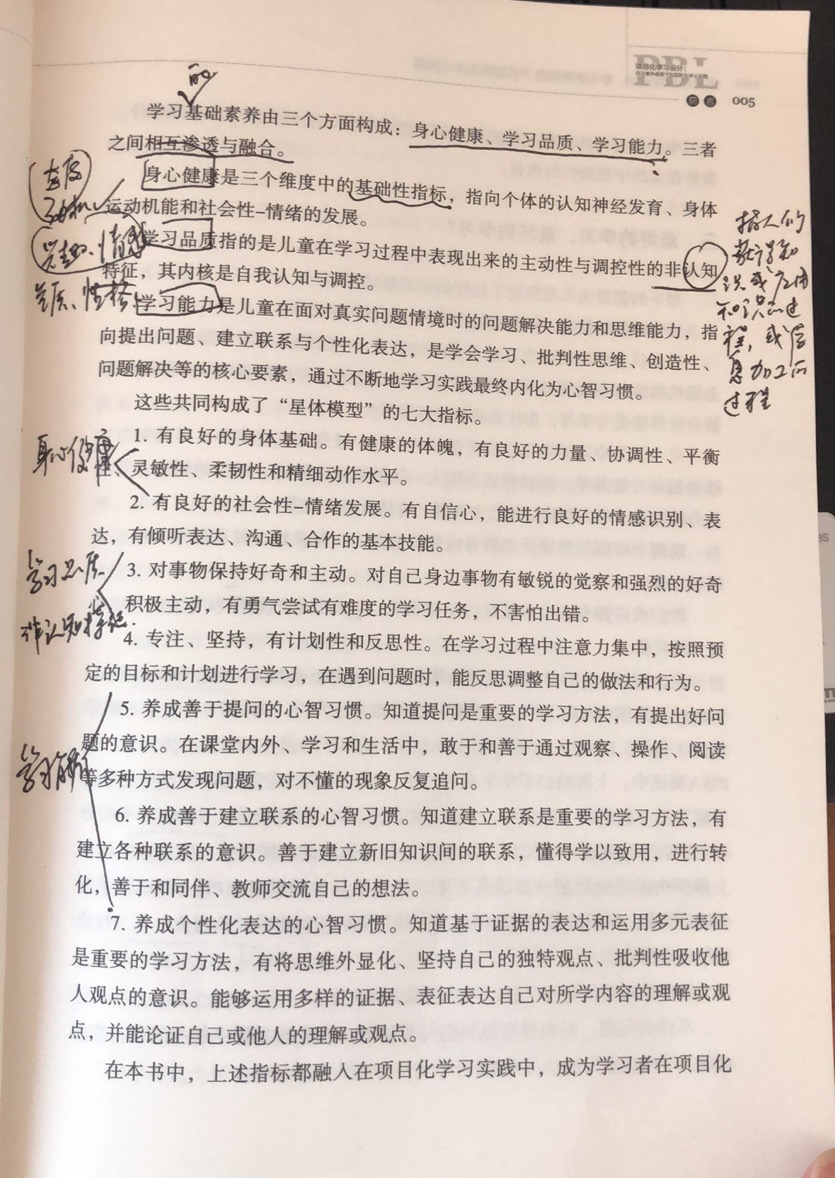 PBL
项目化学习设计
前言 005
的
学习基础素养由三个方面构成：身心健康、学习品质、学习能力。三者
之间相互渗透与融合。
身心健康是三个维度中的基础性指标，指向个体的认知神经发育、身体
运动机能和社会性-情绪的发展。
学习品质指的是儿童在学习过程中表现出来的主动性与调控性的非认知
特征，其内核是自我认知与调控。
学习能力是儿童在面对真实问题情境时的问题解决能力和思维能力，指
向提出问题、建立联系与个性化表达，是学会学习、批判性思维、创造性、
问题解决等的核心要素，通过不断地学习实践最终内化为心智习惯。
这些共同构成了“星体模型”的七大指标。
1. 有良好的身体基础。有健康的体魄，有良好的力量、协调性、平衡
性、灵敏性、柔韧性和精细动作水平。
2. 有良好的社会性-情绪发展。有自信心，能进行良好的情感识别、表
达，有倾听表达、沟通、合作的基本技能。
3. 对事物保持好奇和主动。对自己身边事物有敏锐的觉察和强烈的好奇
积极主动，有勇气尝试有难度的学习任务，不害怕出错。
4. 专注、坚持，有计划性和反思性。在学习过程中注意力集中，按照预
定的目标和计划进行学习，在遇到问题时，能反思调整自己的做法和行为。
5. 养成善于提问的心智习惯。知道提问是重要的学习方法，有提出好问
题的意识。在课堂内外、学习和生活中，敢于和善于通过观察、操作、阅读
等多种方式发现问题，对不懂的现象反复追问。
6. 养成善于建立联系的心智习惯。知道建立联系是重要的学习方法，有
建立各种联系的意识。善于建立新旧知识间的联系，懂得学以致用，进行转
化，善于和同伴、教师交流自己的想法。
7. 养成个性化表达的心智习惯。知道基于证据的表达和运用多元表征
是重要的学习方法，有将思维外显化、坚持自己的独特观点、批判性吸收他
人观点的意识。能够运用多样的证据、表征表达自己对所学内容的理解或观
点，并能论证自己或他人的理解或观点。
在本书中，上述指标都融入在项目化学习实践中，成为学习者在项目化
态度
动机
兴趣、情感
气质、性格
身心健康
学习品质
非认知特征
学习能力
指人们
获得知
识或应用
知识的过
程，或信
息加工的
过程